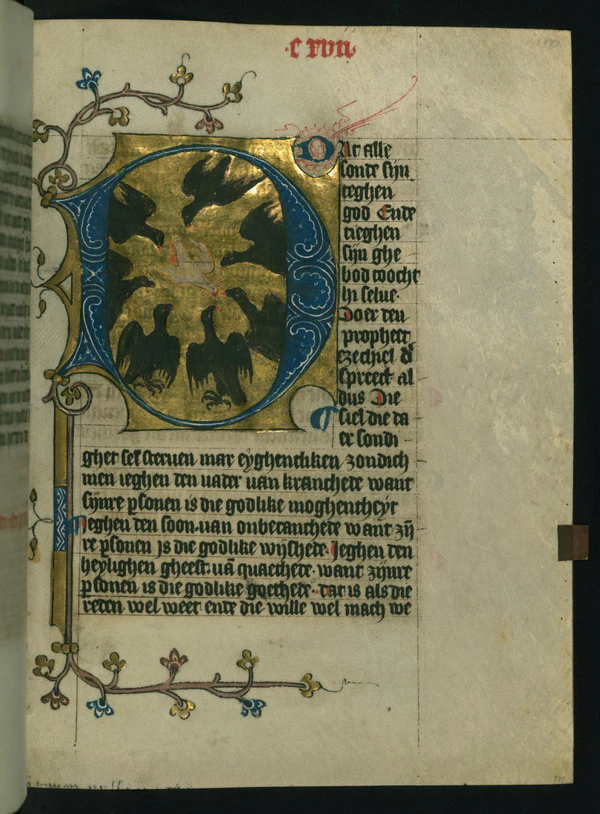 c xvii
Dat alle
sonde sijn
teghen
god Ende
tieghen
sijn ghe
bod toocht
hi selue
Doer den
propheet
ezechiel d̕
spreect al
dus Die
siel die da
er sondi
ghet sel steruen mar eyghentliken zondich
men ieghen den uader uan kranchede want
sijnre p̲sonen is die godlike moghentheyt
Ieghen den soon uan onbecanthede want zij̄
re p̲sonen is die godlike wijshede Ieghen den
heylighen gheest uā quaethede want zijnre
p̲sonen is die godlike goethede dat is als die
reden wel weet ente die wille wel mach we